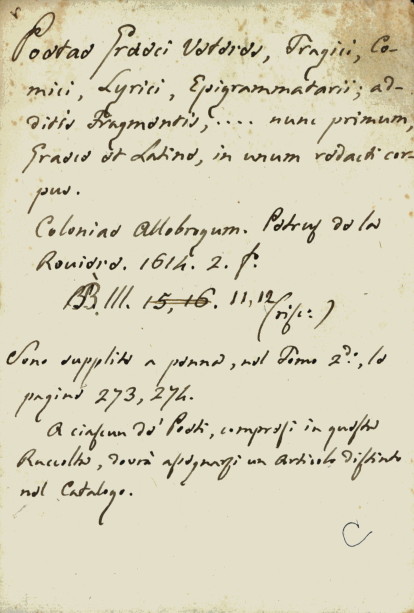 Poetae Graeci Veteres, Tragici, Co-
mici, Lyrici, Epigrammatarii; ad-
ditis Fragmentis, .... nunc primum,
Graece et Latine, in unum redacti cor-
pus.
Coloniae Allobrogum. Petrus de la
Roviere. 1614. 2. f.
BB. III. 15, 16. 11, 12
Sono supplite a penna, nel Tomo 2do., le
pagine 273, 274.
A ciascun de' Poeti, compresi in questa
Raccolta, dovrà assegnarsi un Articolo distinto
nel Catalogo.
C